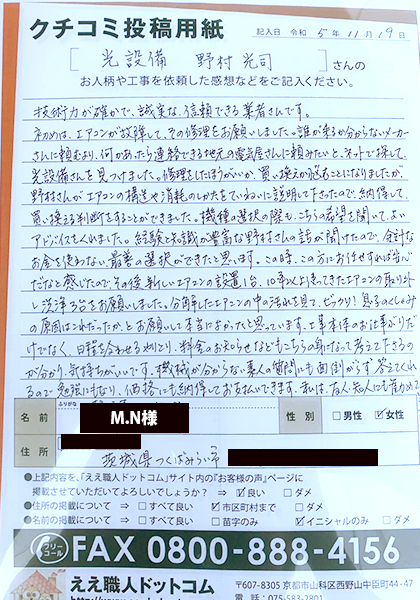 クチコミ投稿用紙
記入日 令和 5年 11月 19日
[光設備 野村光司]さんの
お人柄や工事を依頼した感想などをご記入ください。
技術力が確かで、誠実な、信頼できる業者さんです。
初めは、エアコンが故障して、その修理をお願いしました。誰が来るか分からないメーカー
さんに頼むより、何かあったら連絡できる地元の電気屋さんに頼みたいと、ネットで探して、
光設備さんを見つけました。修理をしたほうがいいか、買い換えか迷ることになりましたが、
野村さんがエアコンの構造や消耗のしかたをていねいに説明して下さったので、納得して、
買い換える判断をすることができました。機種の選択の際も、こちらの希望を聞いて、よい
アドバイスをくれました。経験と知識が豊富な野村さんの話が聞けたので、余計な
お金を使わない、最善の選択ができたと思います。この時、この方にお任せすれば安心
だなと感じたので、その後、新しいエアコンの設置1台、10年以上使ってきたエアコンの取り外
し洗浄3台をお願いしました。分解したエアコンの中の汚れを見て、びっくり!見るのしゃみ
の原因はこれだったか、とお願いして本当によかったと思っています。工事本体のお仕事ぶりだ
けでなく、日程を合わせる
料金のお知らせなどもこちらの身になって考えて下さるの
が分かり、気持ちがいいです。機械が分からない素人の質問にも面倒がらず答えてくれ
るので勉強にもなり、価格にも納得してお支払いできます。私は、友人・知人にも
ふりがな
名前 M.N様 性別 □男性 ☑女性
住所
茨城県つくばみらい市
●上記内容を、「ええ職人ドットコム」サイト内の『お客様の声』ページに
掲載させていただいてよろしいでしょうか? → ☑良い □ダメ
●住所の掲載について → □すべて良い ☑市区町村まで □ダメ
●名前の掲載について → □すべて良い □苗字のみ ☑イニシャルのみ □ダメ
フリーコール FAX 0800-888-4156
ええ職人ドットコム
〒607-8305 京都市山科区西野山中臣町44-47
電 話:075-583-2801